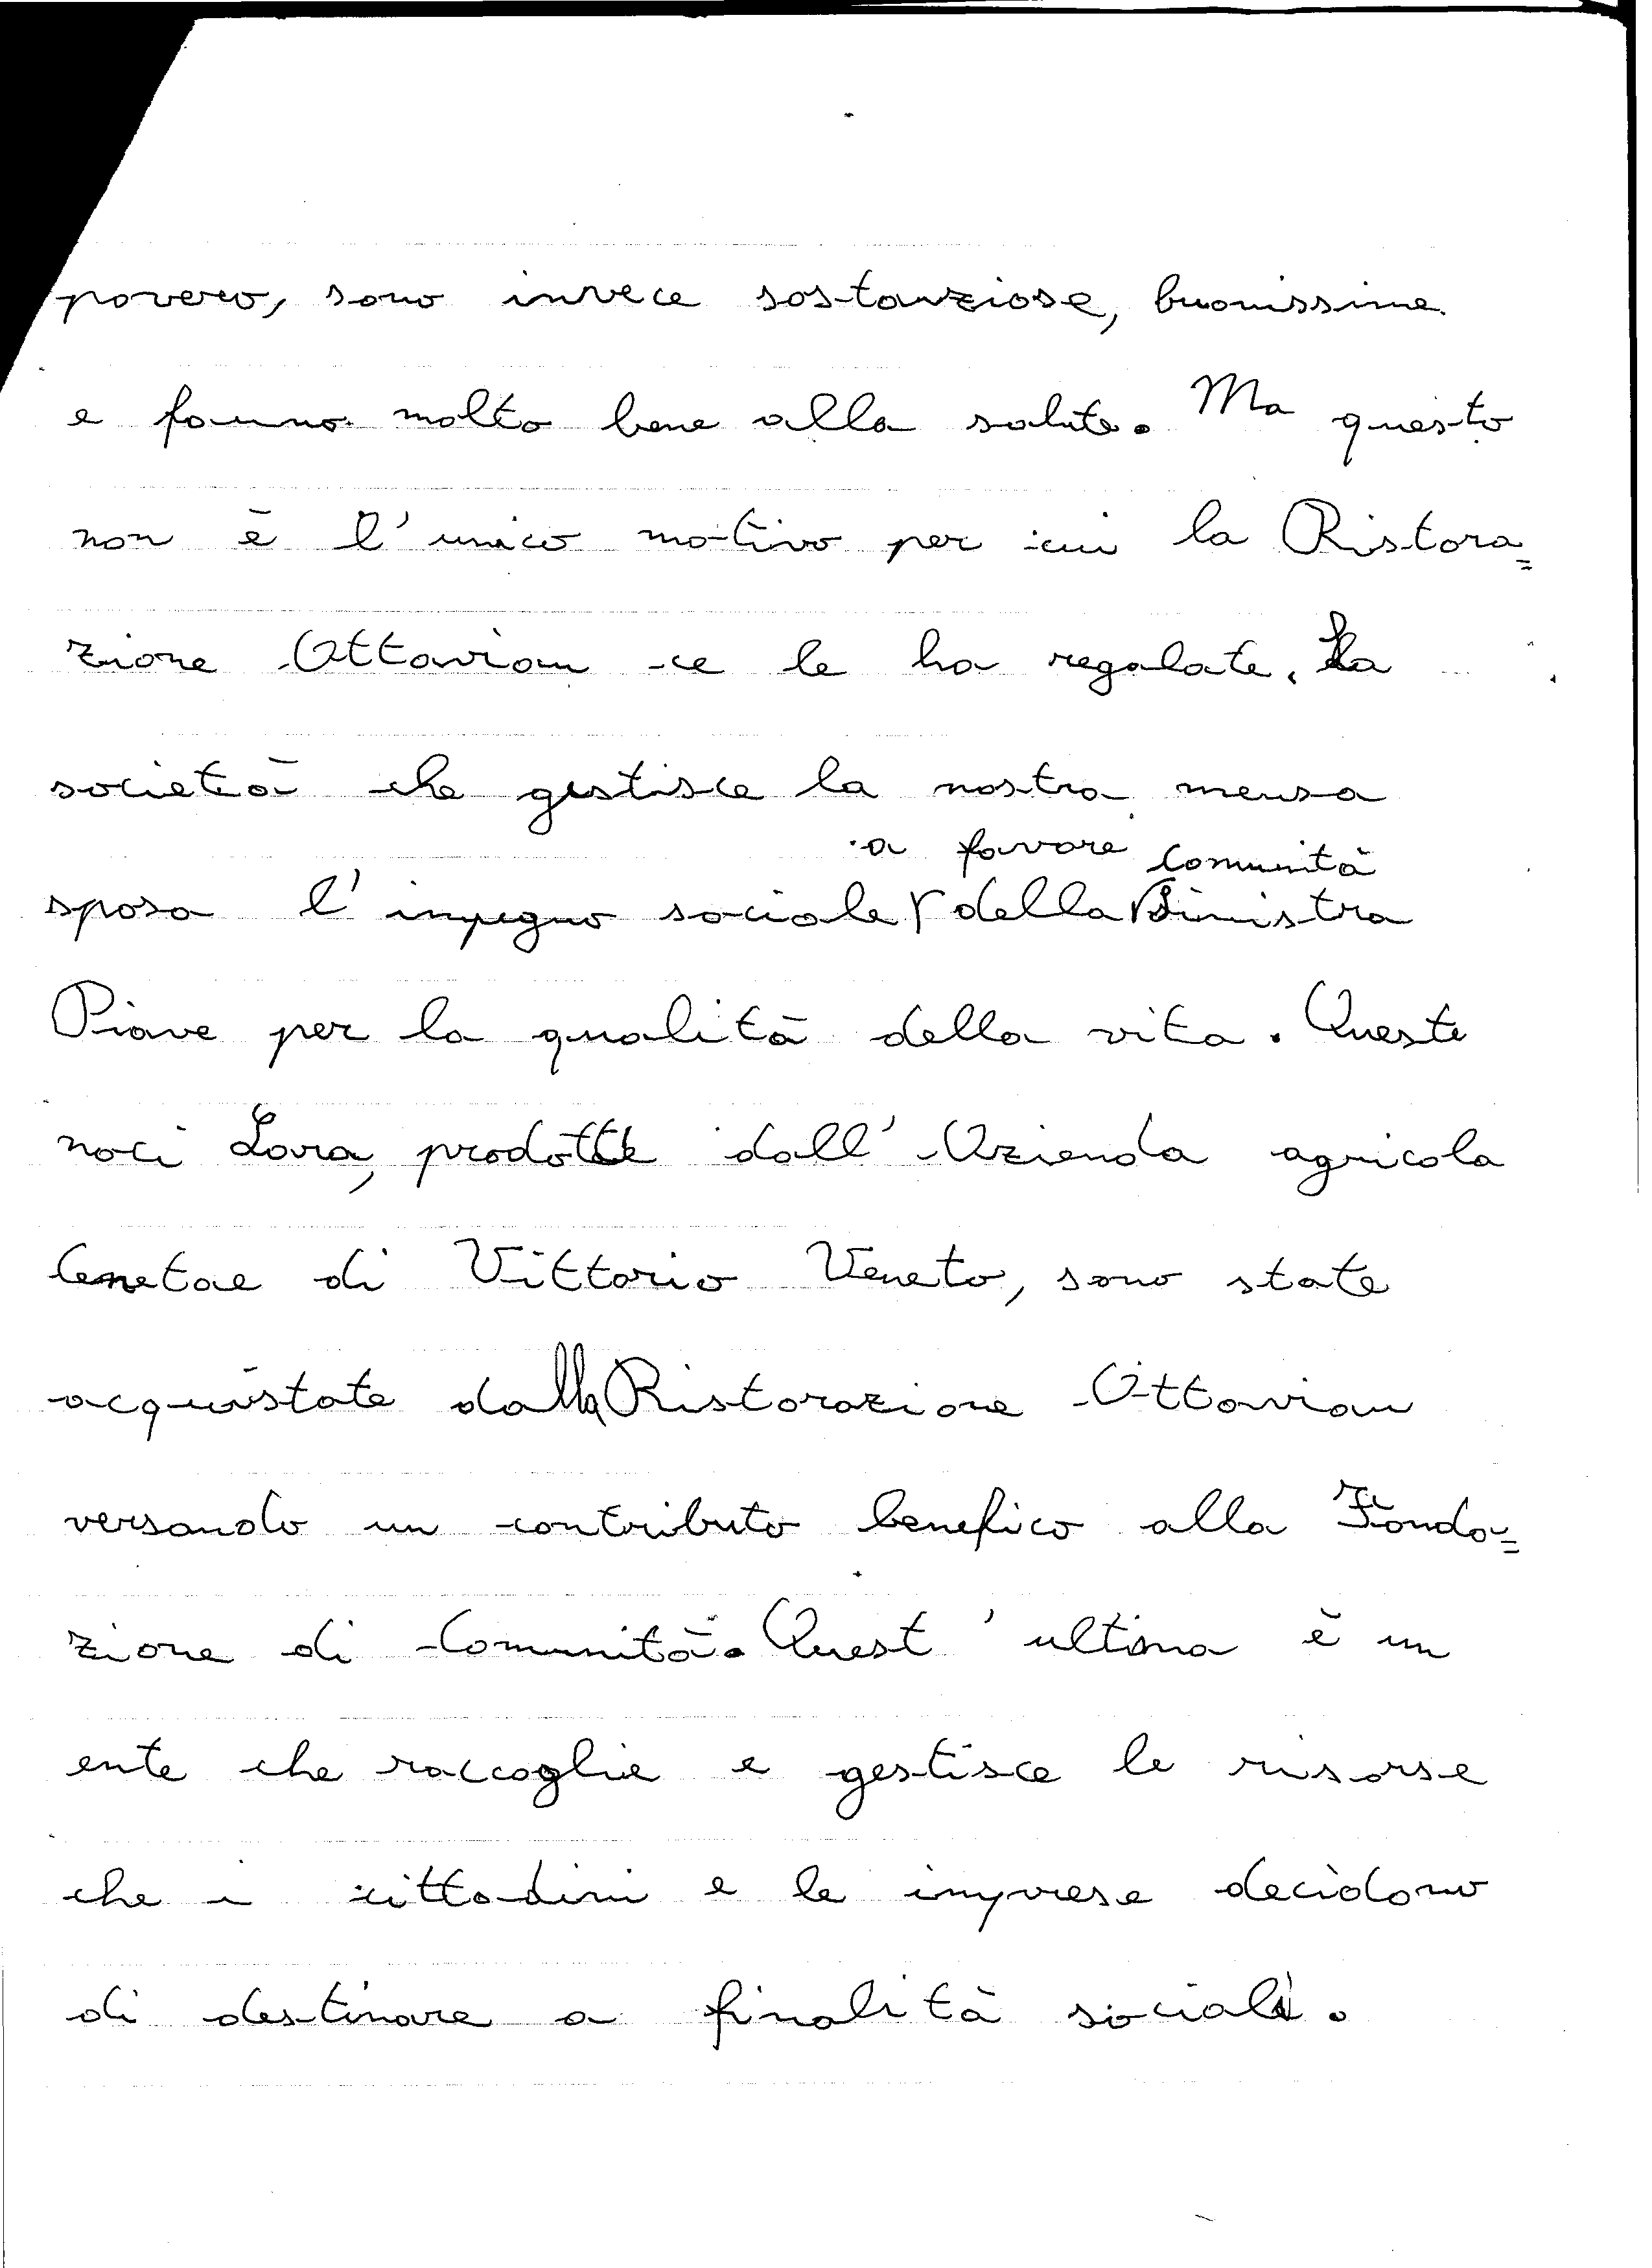 povero, sono invece sostanziose, buonissime
e fanno molto bene alla salute. Ma questo
non è l'unico motivo per cui la Ristora=
zione Ottavian ce le ha regalate. La
società che gestisce la nostra mensa
a favore comunità
sposa l'impegno sociale della Sinistra
Piave per la qualità della vita. Queste
noci Lara, prodotte dall'Azienda agricola
Cenetae di Vittorio Veneto, sono state
acquistate dalla Ristorazione Ottavian
versando un contributo benefico alla Fonda=
zione di Comunità. Quest'ultima è un
ente che raccoglie e gestisce le risorse
che i cittadini e le imprese decidono
di destinare a finalità sociali.